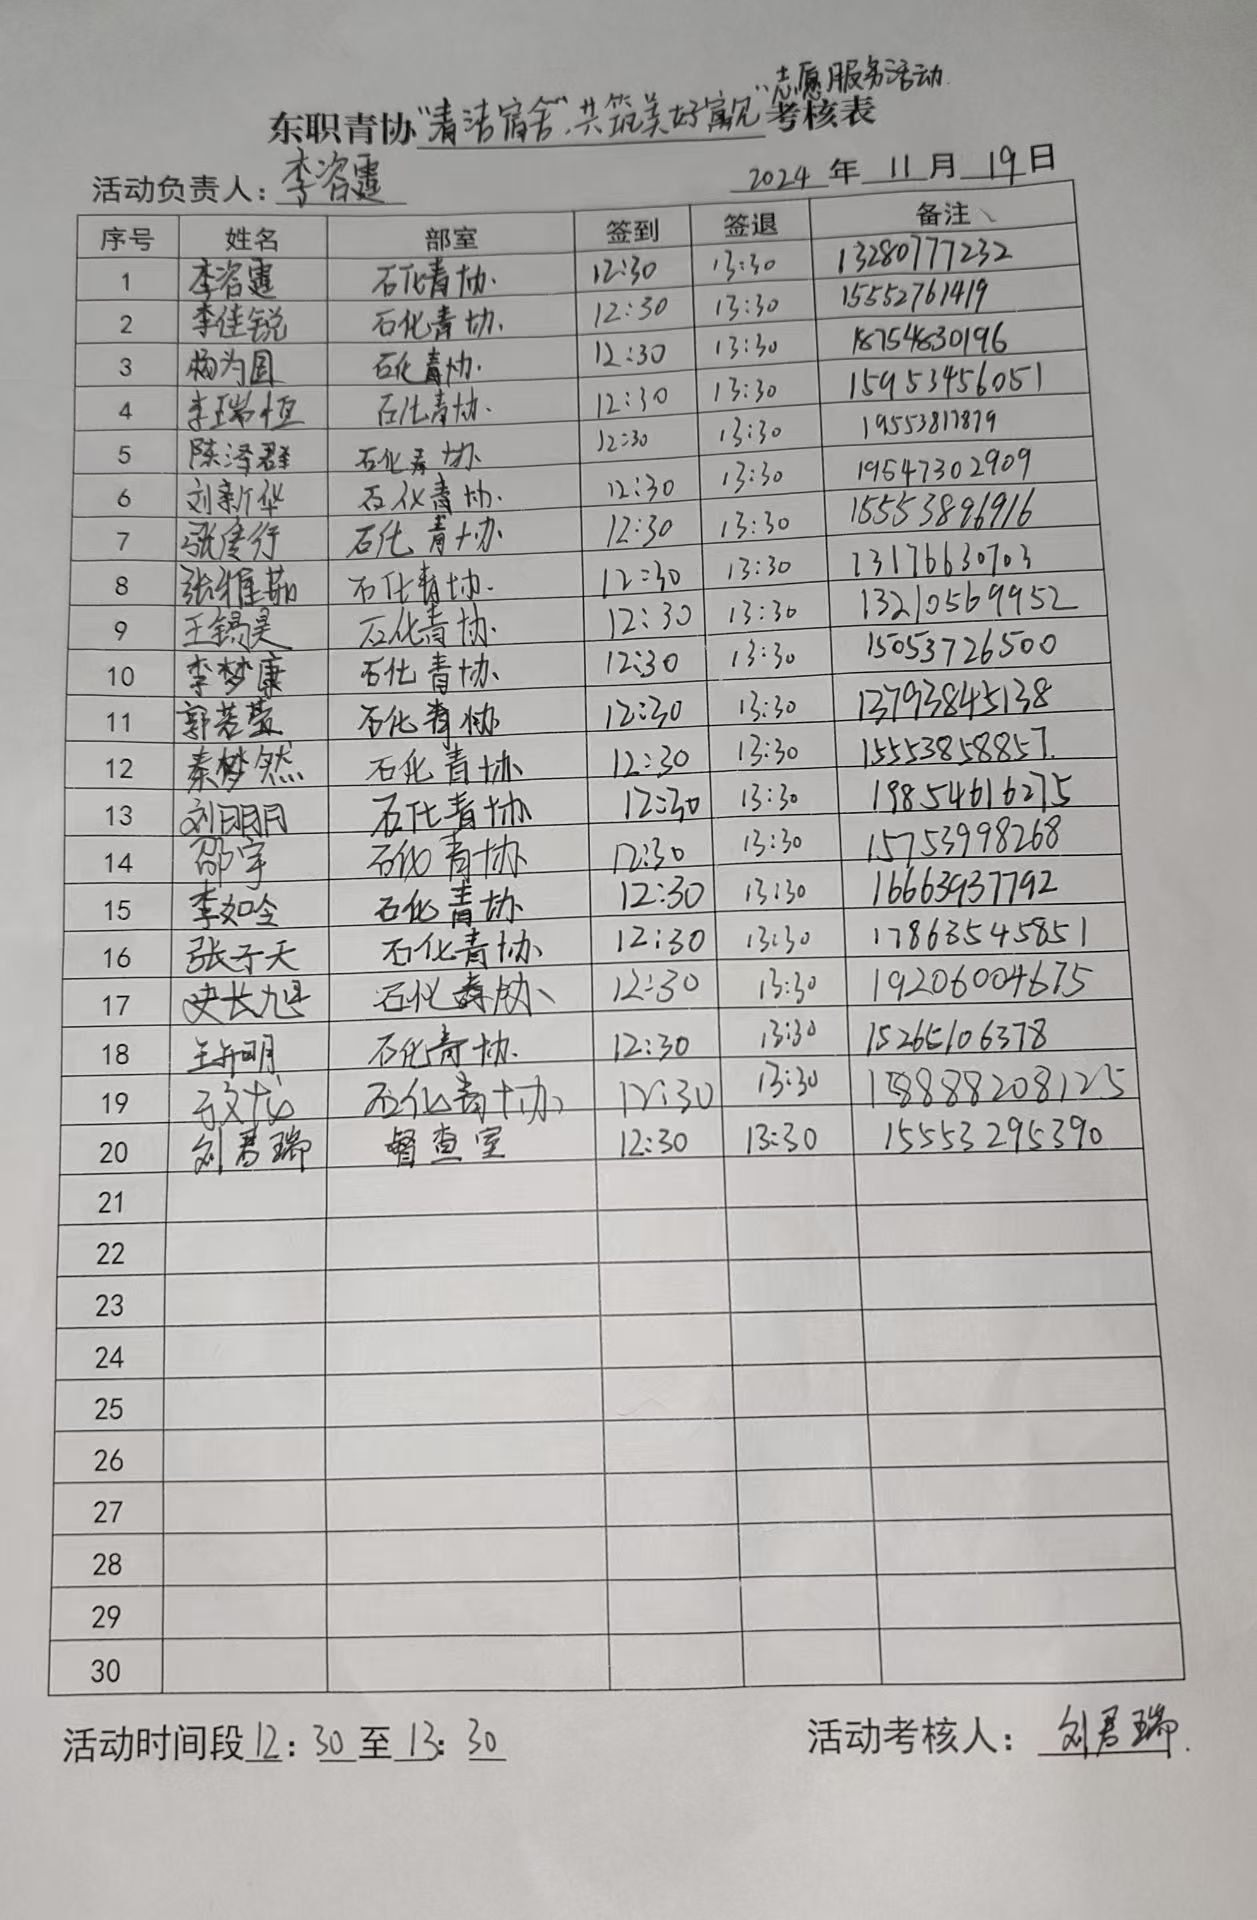 志愿服务活动
东职青协"清洁宿舍",共筑美好寓见"考核表
活动负责人: 李咨霆 2024 年 11 月 19 日
序号 姓名 部室 签到 签退 备注
1 李咨霆 石化青协. 12:30 13:30 13280777232
2 李佳锐 石化青协. 12:30 13:30 15552761419
3 杨为国 石化青协. 12:30 13:30 18754830196
4 李瑞恒 石化青协. 12:30 13:30 15953456051
5 陈泽群 石化青协. 12:30 13:30 19553817879
6 刘新华 石化青协. 12:30 13:30 19547302909
7 石化青协 12:30 13:30 15553896916
8 张雅茹 石化青协. 12:30 13:30 13176630703
9 王锡昊 石化青协. 12:30 13:30 13210569952
10 李梦康 石化青协. 12:30 13:30 15053726500
11 郭若萱 石化青协 12:30 13:30 13793845138
12 秦梦然 石化青协 12:30 13:30 15553858857.
13 刘明月 石化青协 12:30 13:30 19854616275
14 邵宇 石化青协 12:30 13:30 15753998268
15 李如令 石化青协 12:30 13:30 16663937792
16 张子天 石化青协. 12:30 13:30 17863545851
17 史长旭 石化青协、 12:30 13:30 19206004675
18 石化青协. 12:30 13:30 15265106378
19 于文龙 石化青协 12:30 13:30
20 刘君瑞 督查室 12:30 13:30 15553295390
21
22
23
24
25
26
27
28
29
30
活动时间段 12 : 30 至 13 : 30 活动考核人: 刘君瑞.